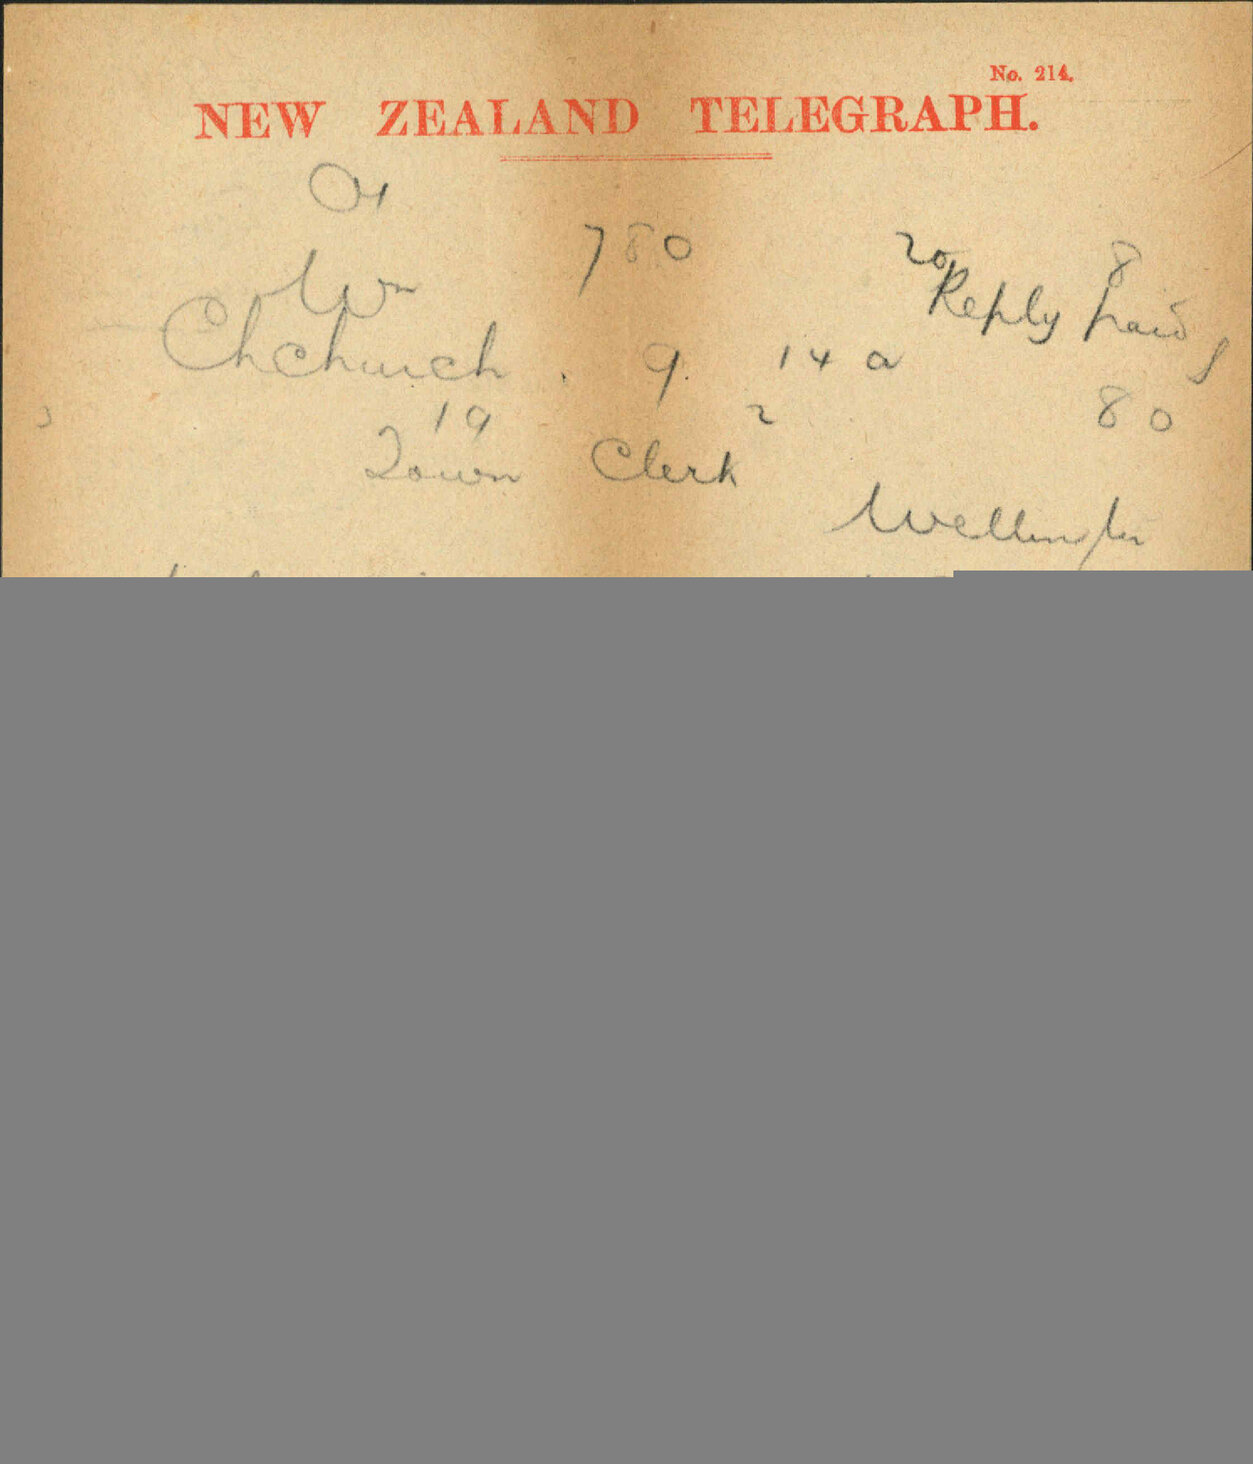 No. 214.
NEW ZEALAND TELEGRAPH.
780 20 8
Wn Reply paid
Chchurch. 9. 14 a
19 2 80
Town Clerk
Wellington